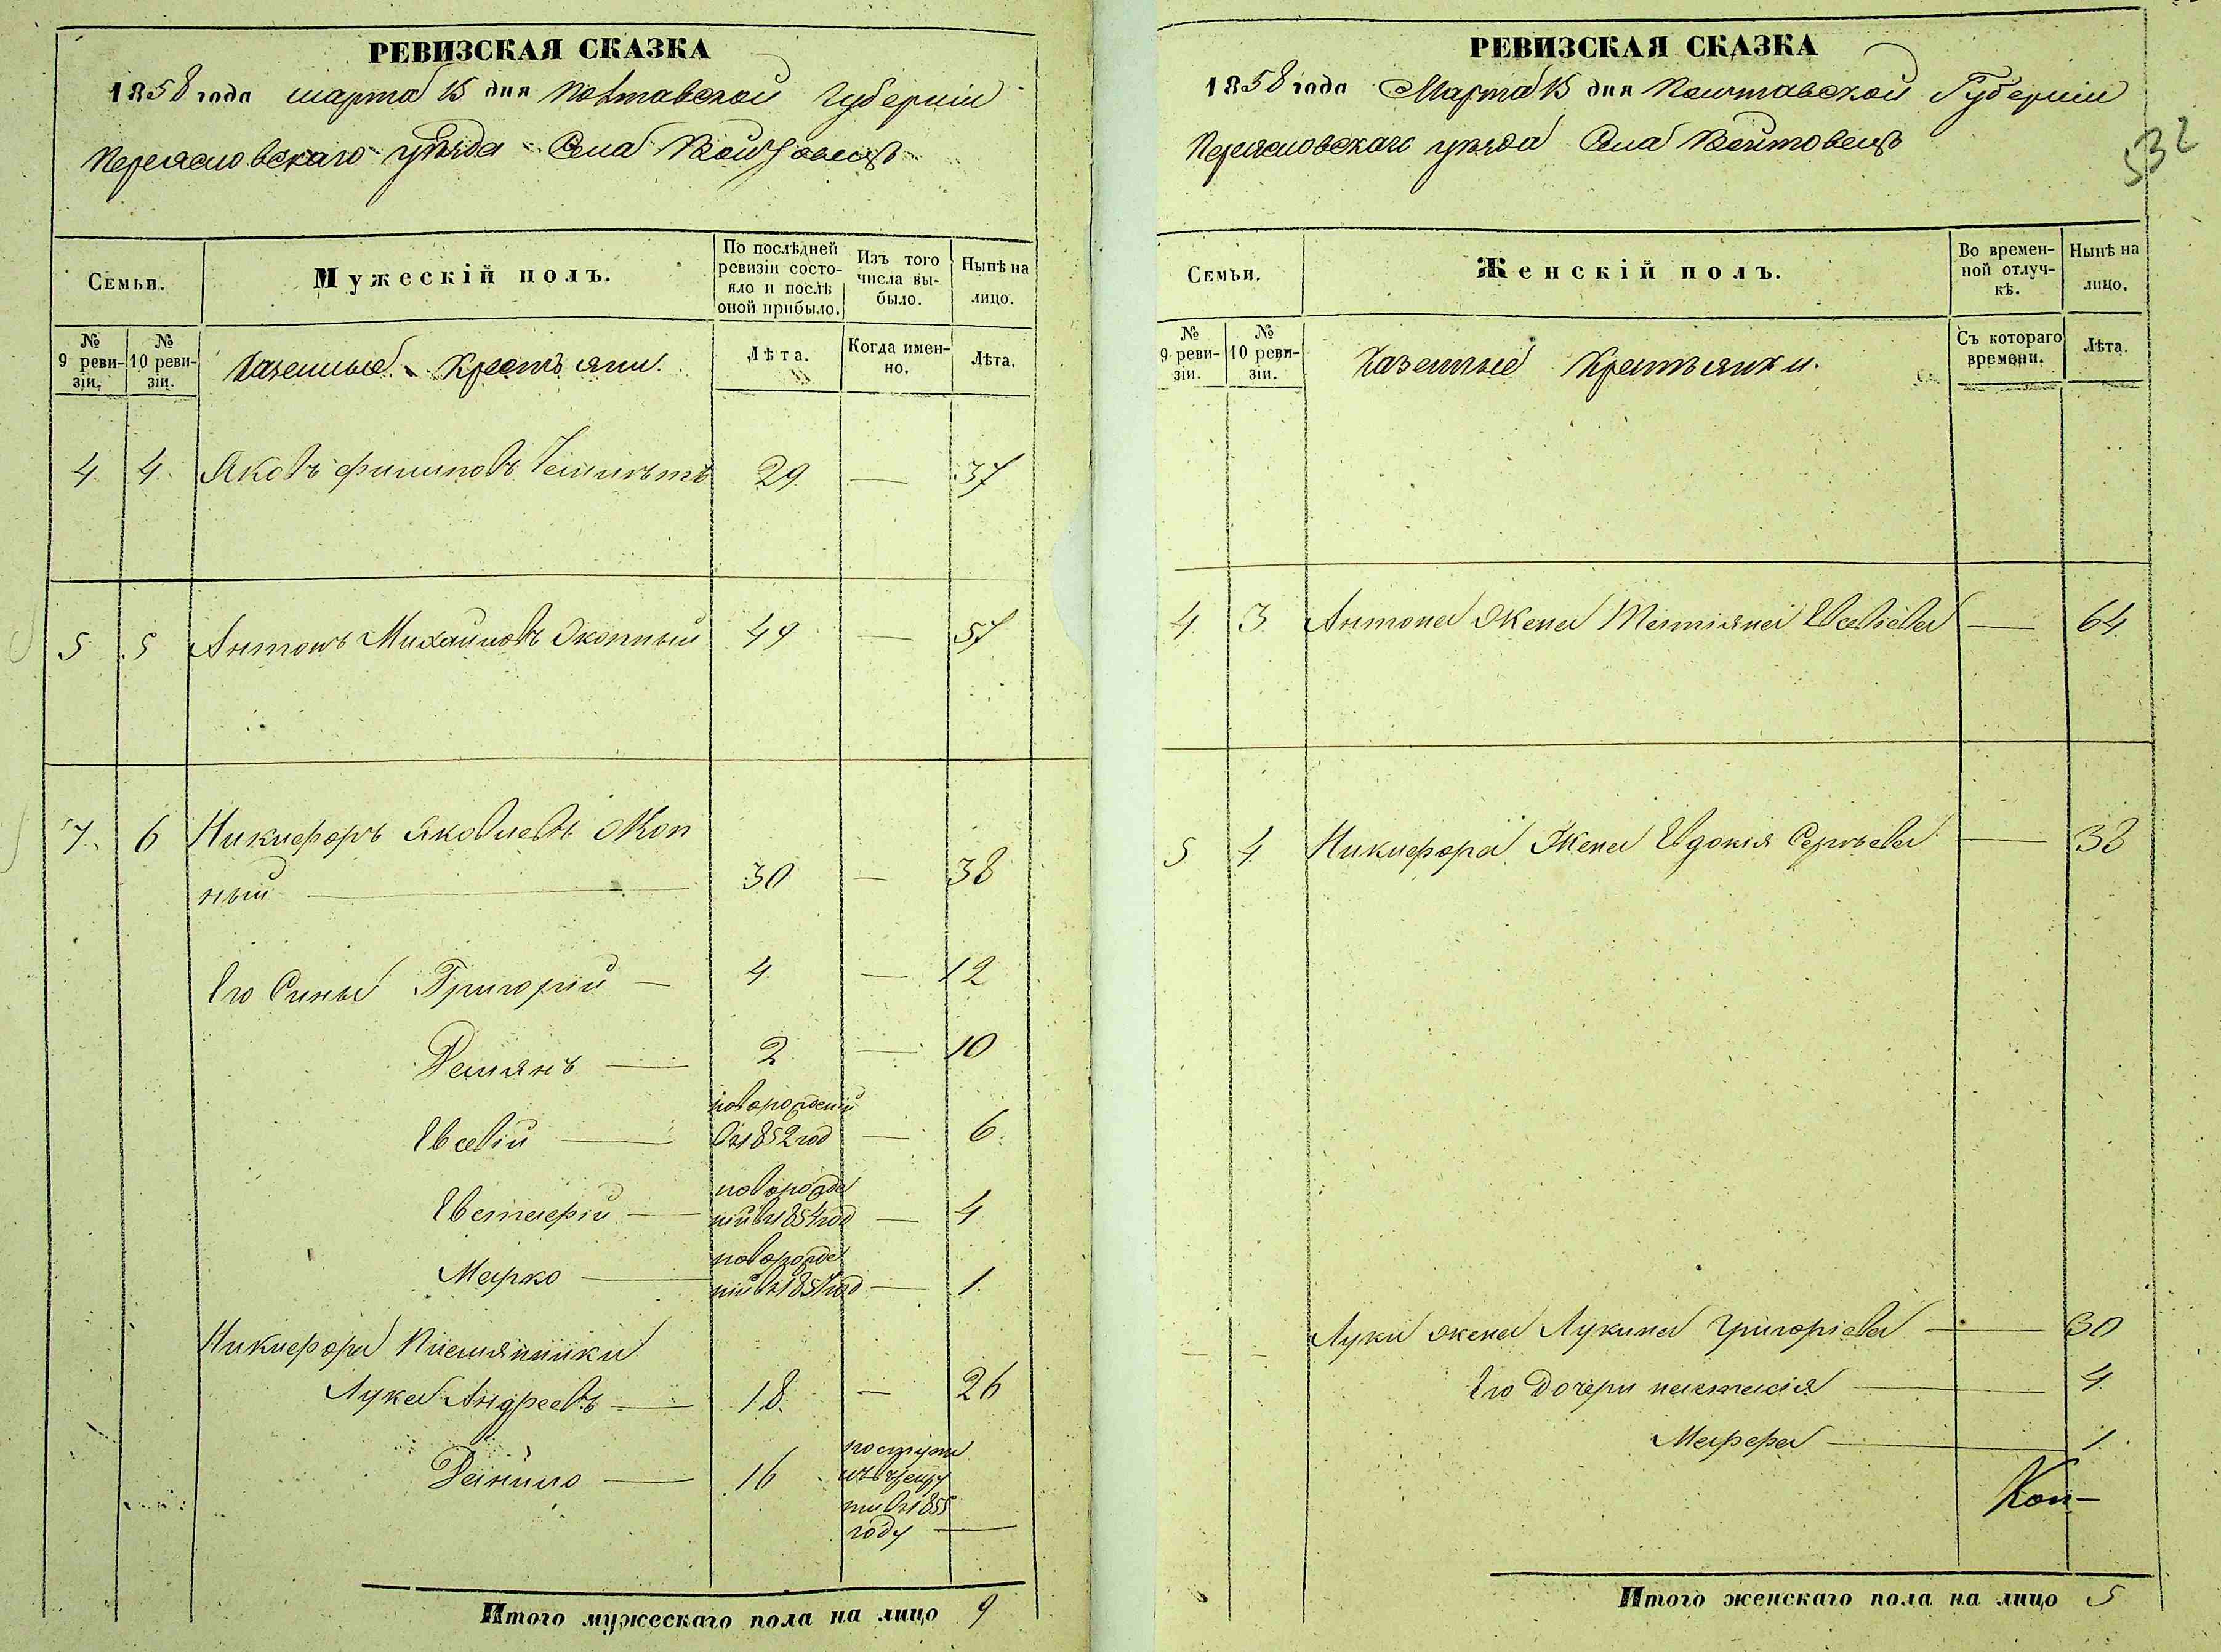 РЕВИЗСКАЯ СКАЗКА
1858 года марта 15 дня Полтавской Губерніи
Переясловскаго уѣзда Села Войтовецъ
Семьи.
Мужескій полъ.
По послѣдней ревизіи состояло и послѣ оной прибыло.
Изъ того числа выбыло.
Нынѣ на лицо.
№ 9 ревизіи.
№ 10 ревизіи.
Казенные Крестьяни.
Лѣта.
Когда именно.
Лѣта.
4 4 Яковъ Филиповъ 29 — 37
5 5 Антонъ Михайловъ Окопный 49 — 57
7. 6 Никифоръ Яковлевъ Окоп
ный — 30 — 38
Его Сины Григорій — 4 — 12
Демянъ — 2 — 10
новорожденій
Евсевій — въ 1852 год — 6
новорожде
Евстаферій — ній въ 1854 год — 4
новорожде
Марко — ній въ 1857 год — 1
Никифора Племянники
Лука Андреевъ — 18 — 26
Данило — 16 поступи
лъ въ
ти въ 1855
году —
Итого мужескаго пола на лицо 9
РЕВИЗСКАЯ СКАЗКА
1858 года Марта 15 дня Полтавской Губерніи
Переясловскаго уѣзда Села Войтовецъ
532
Семьи.
Женскій полъ.
Во временной отлучкѣ.
Нынѣ на лицо.
№ 9 ревизіи.
№ 10 ревизіи.
Казенные Крестьянки.
Съ котораго времени.
Лѣта.
4. 3 Антона Жена Татіяна Евсѣева — 64
5 4 Никифора Жена Евдокія Сергѣева — 38
– – Луки жена Лукина Григоріева — 30
Его Дочери Настасія — 4
Марфа — 1
Итого женскаго пола на лицо 5